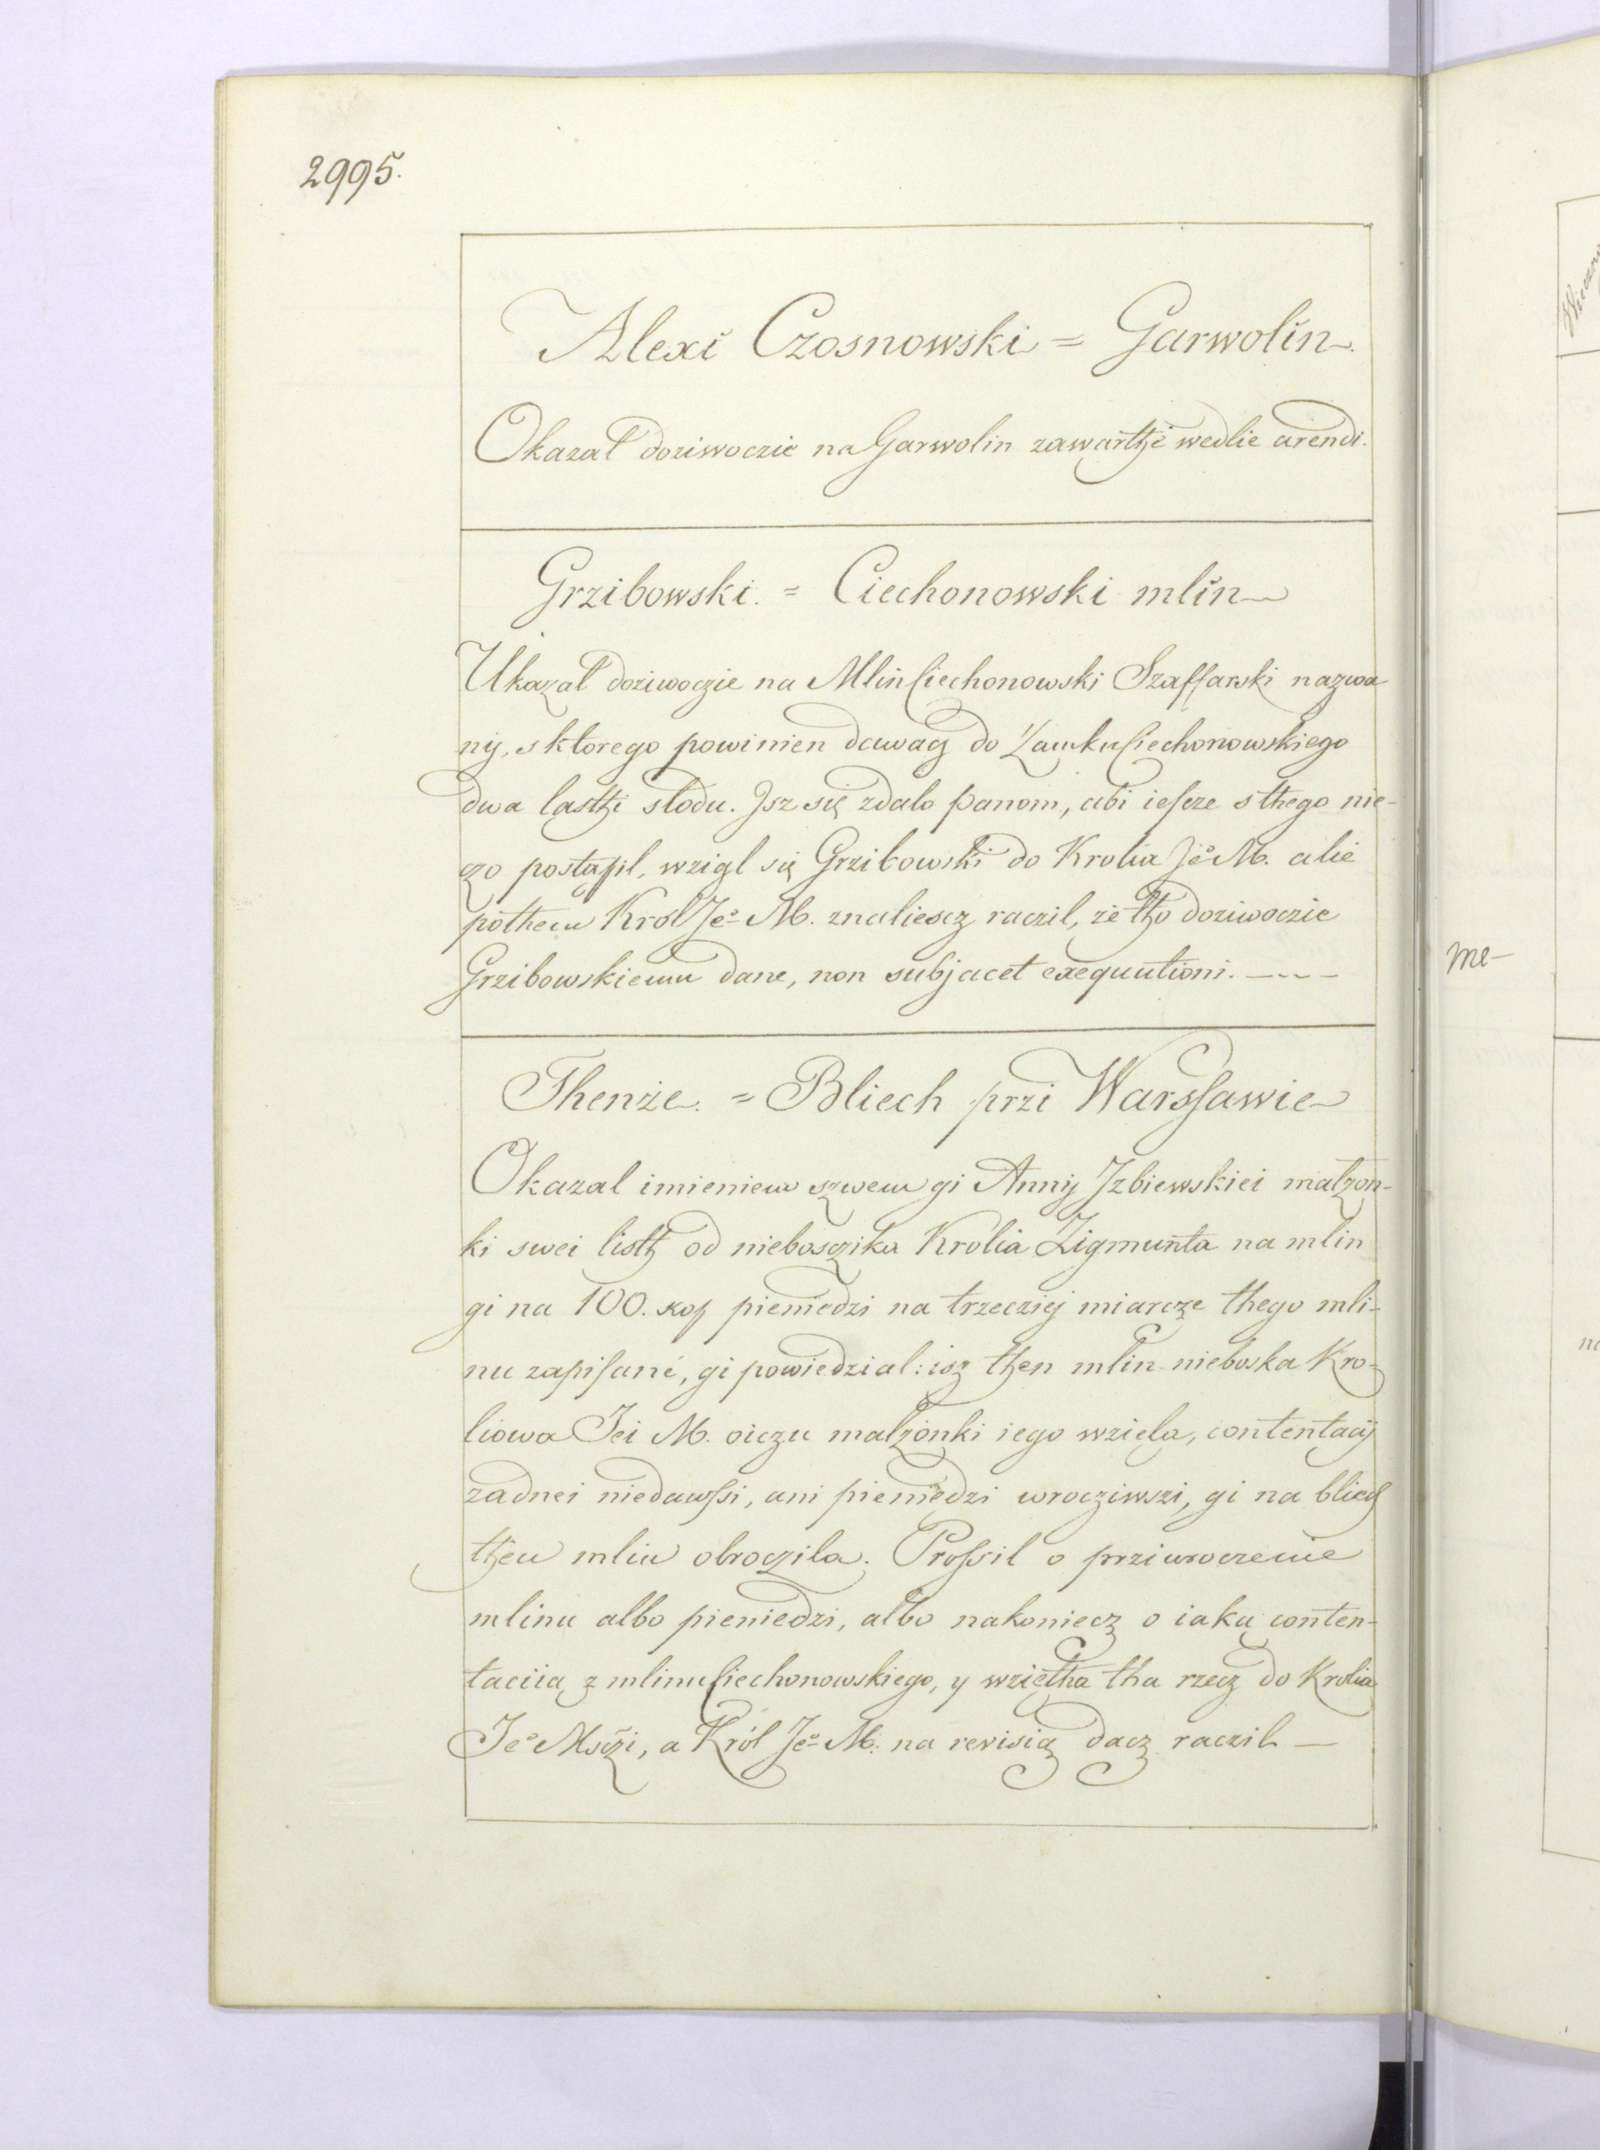 2995.
Alexi Czosnowski = Garwolin.
Okazał doziwoczie na Garwolin zawarthe wedlie arendi.
Grzibowski. = Ciechonowski mlin
Ukazał doziwoczie na Mlin Ciechonowski Szaffarski nazwa
ny, s ktorego powinien dawacz do Zamku Ciechonowskiego
dwa lasthi słodu. Jsz się zdało panom, abi iescze s thego nie-
czo postąpil, wziąl się Grzibowski do Krolia Je° M. alie
pothem Krol Je° M. znaliescz raczil, że tho doziwoczie
Grzibowskiemu dane, non subjacet exequutioni.
Thenże. = Bliech przi Warssawie
Okazal imieniem szwem gi Anny Jzbiewskiei małzon-
ki swei listh od nieboszczika Krolia Zigmunta na mlin
gi na 100. kop pieniedzi na trzecziej miarcze thego mli-
nu zapisane, gi powiedzial: isz then mlin nieboska Kro-
liowa Jei M. oiczu malzonki iego wziela, contentacij
zadnei niedawssi, ani pieniedzi wrocziwszi, gi na bliech
then mlin obroczila. Prossil o prziwroczenie
mlinu albo pieniedzi, albo nakoniecz o iaką conten-
taciią z mlinu Ciechonowskiego, y wzięta tha rzecz do Krolia
Je° Msczi, a Król Je° M. na revisią dacz raczil
me-